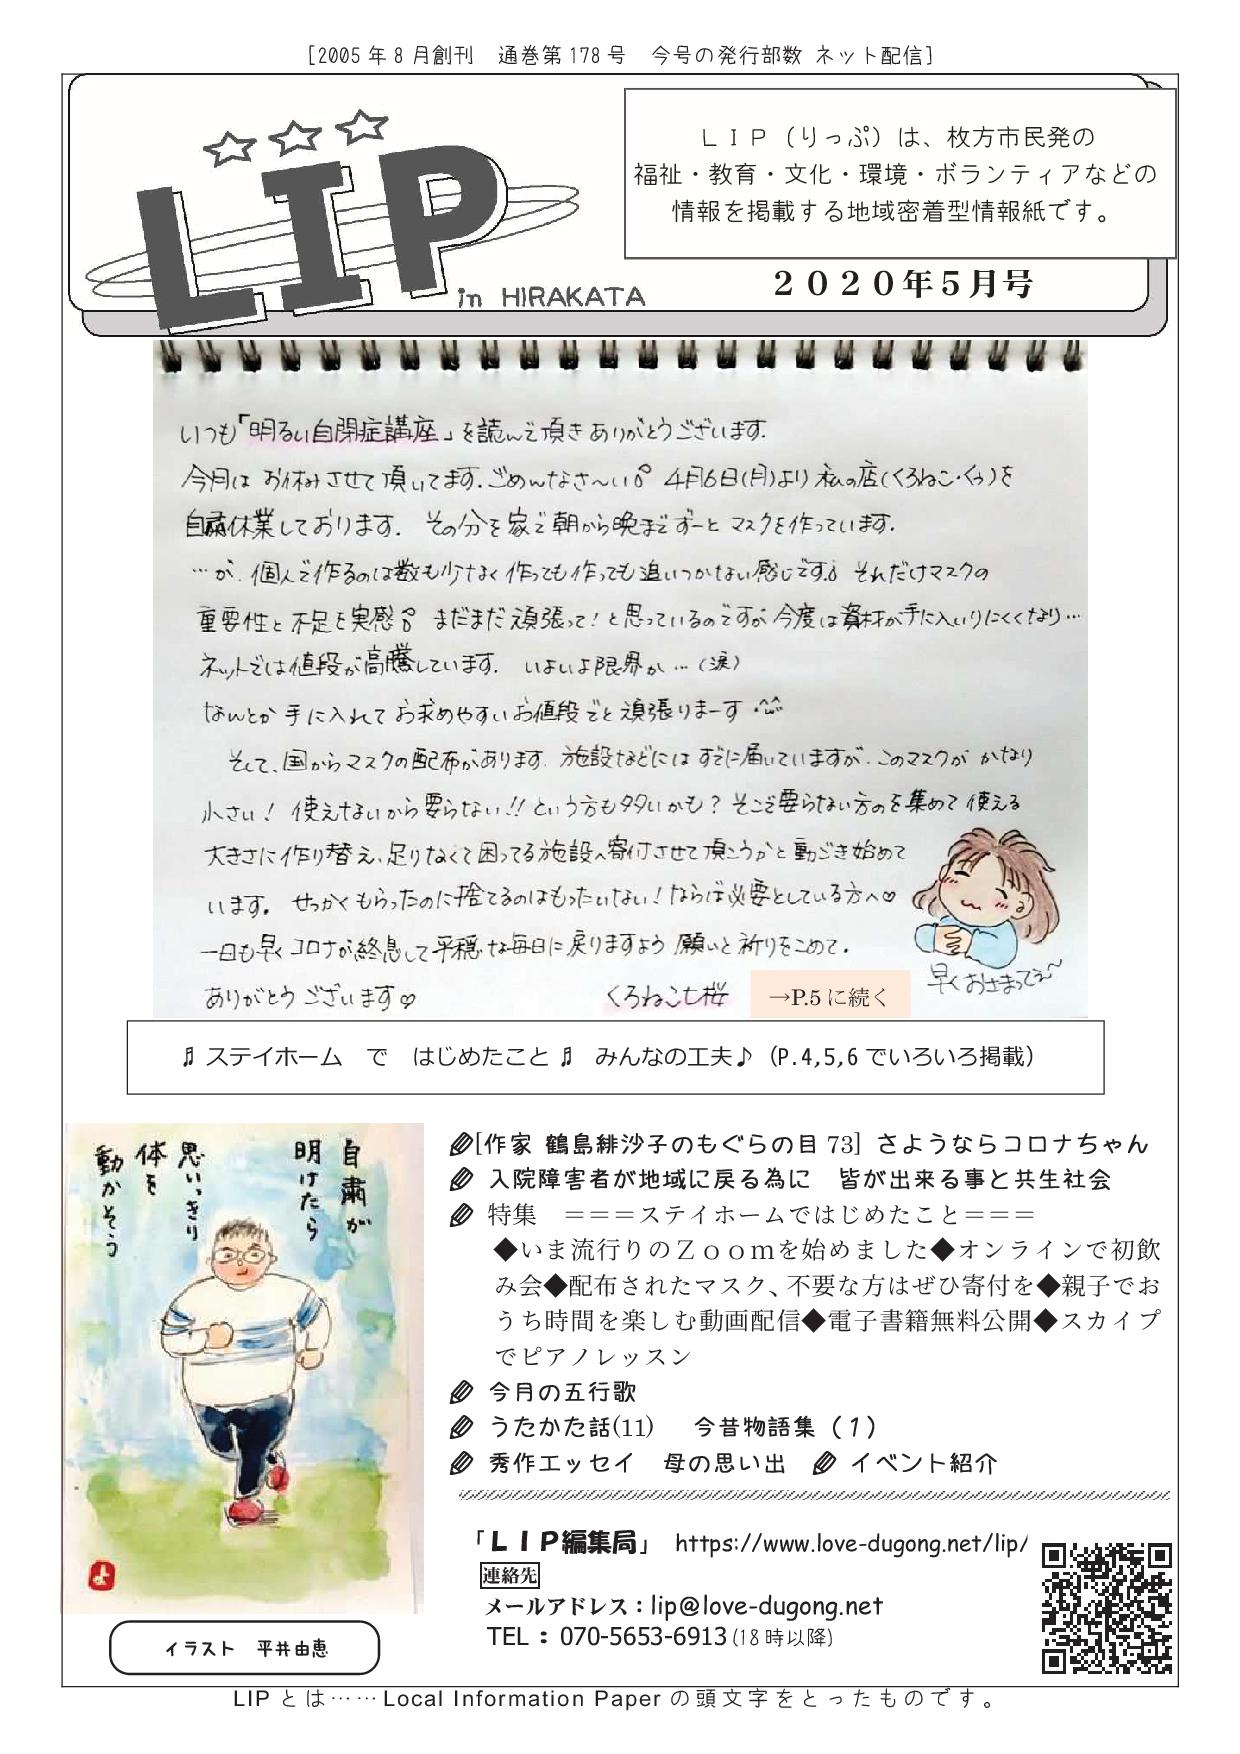 [2005年8月創刊　通巻第178号　今号の発行部数 ネット配信]
LIP
in HIRAKATA
ＬＩＰ（りっぷ）は、枚方市民発の
福祉・教育・文化・環境・ボランティアなどの
情報を掲載する地域密着型情報紙です。
２０２０年５月号
いつも「明るい自閉症講座」を読んで頂きありがとうございます.
今月は お休みさせて頂いてます. ごめんなさ〜い 4月6日(月)より 私の店(くろねこ・くぅ)を
自粛休業しております. その分を家で朝から晩までずーと マスクを作っています.
…が. 個人で作るのは数も少なく作っても作っても追いつかない感じです それだけマスクの
重要性と不足を実感 まだまだ頑張って! と思っているのですが 今度は資材が手に入いりにくくなり…
ネットでは値段が高騰しています. いよいよ限界か…(涙)
なんとか手に入れて お求めやすいお値段でと頑張りまーす ^^
そして、国からマスクの配布があります. 施設などにはすでに届いていますが. このマスクが かなり
小さい! 使えないから要らない!! という方も多いかも? そこで要らない方のを集めて使える
大きさに作り替え、足りなくて困ってる施設へ寄付させて頂こうかと動ごき始めて
います. せっかくもらったのに捨てるのはもったいない! ならば必要としている方へ♡
一日も早くコロナが終息して平穏な毎日に戻りますよう 願いと祈りをこめて.
ありがとう ございます♡
くろねこ七桜
→P.5に続く
早くおさまってぇ〜
♬ ステイホーム　で　はじめたこと ♬　みんなの工夫♪（P.4,5,6でいろいろ掲載）
自粛が
明けたら
思いっきり
体を
動かそう
よ
イラスト　平井由恵
[作家 鶴島緋沙子のもぐらの目73] さようならコロナちゃん
入院障害者が地域に戻る為に　皆が出来る事と共生社会
特集　＝＝＝ステイホームではじめたこと＝＝＝
◆いま流行りのＺｏｏｍを始めました◆オンラインで初飲
み会◆配布されたマスク、不要な方はぜひ寄付を◆親子でお
うち時間を楽しむ動画配信◆電子書籍無料公開◆スカイプ
でピアノレッスン
今月の五行歌
うたかた話(11)　今昔物語集（１）
秀作エッセイ　母の思い出　イベント紹介
「ＬＩＰ編集局」　https://www.love-dugong.net/lip/
連絡先
メールアドレス：lip@love-dugong.net
TEL：070-5653-6913(18時以降)
LIPとは……Local Information Paperの頭文字をとったものです。